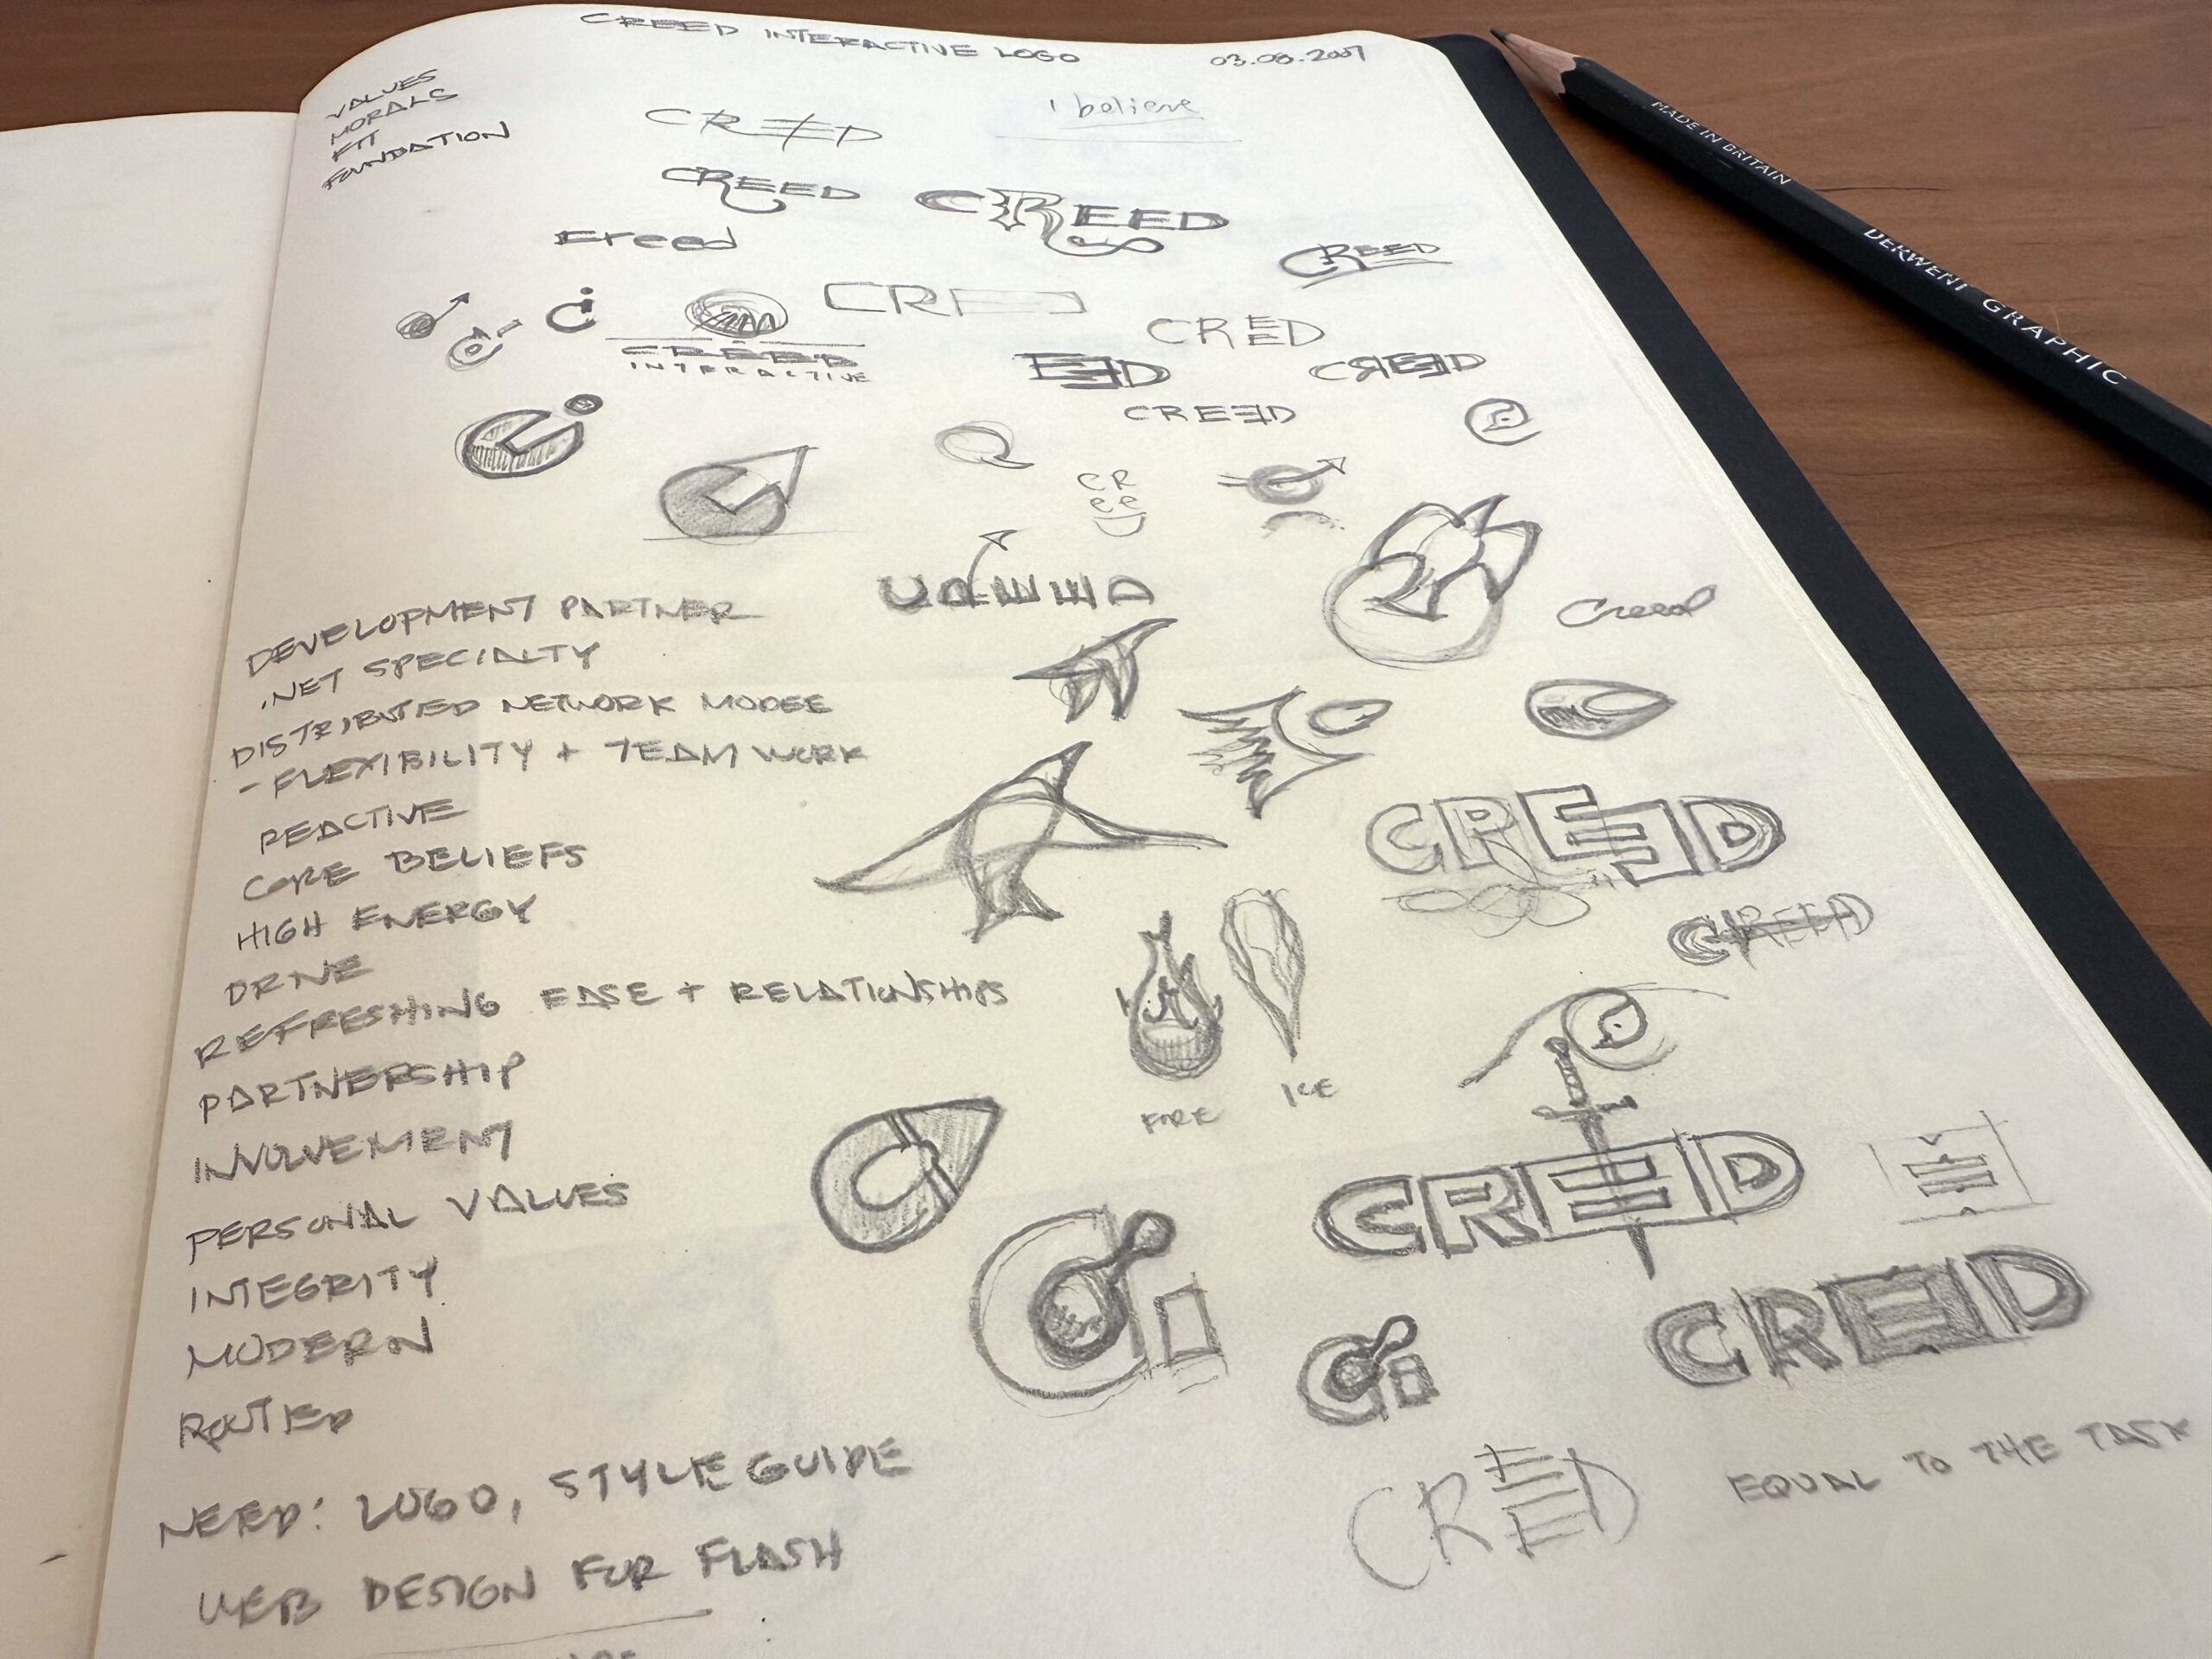 CREED INTERACTIVE LOGO
VALUES
MORALS
FIT
FOUNDATION
I believe
CREED
CREED
CREED
creed
CREED
Ci
CREED
INTERACTIVE
CRE
CREED
EED
CREED
CREED
CR
ee
D
CREED
Creed
DEVELOPMENT PARTNER
.NET SPECIALTY
DISTRIBUTED NETWORK MODEL
- FLEXIBILITY + TEAM WORK
REACTIVE
CORE BELIEFS
HIGH ENERGY
DRIVE
REFRESHING EASE + RELATIONSHIPS
PARTNERSHIP
INVOLVEMENT
PERSONAL VALUES
INTEGRITY
MODERN
ROOTED
NEED: LOGO, STYLE GUIDE
WEB DESIGN FOR FLASH
CREED
CREED
FIRE
ICE
CRED
Ci
Ci
CREED
CREED
EQUAL TO THE TASK
MADE IN BRITAIN
DERWENT GRAPHIC